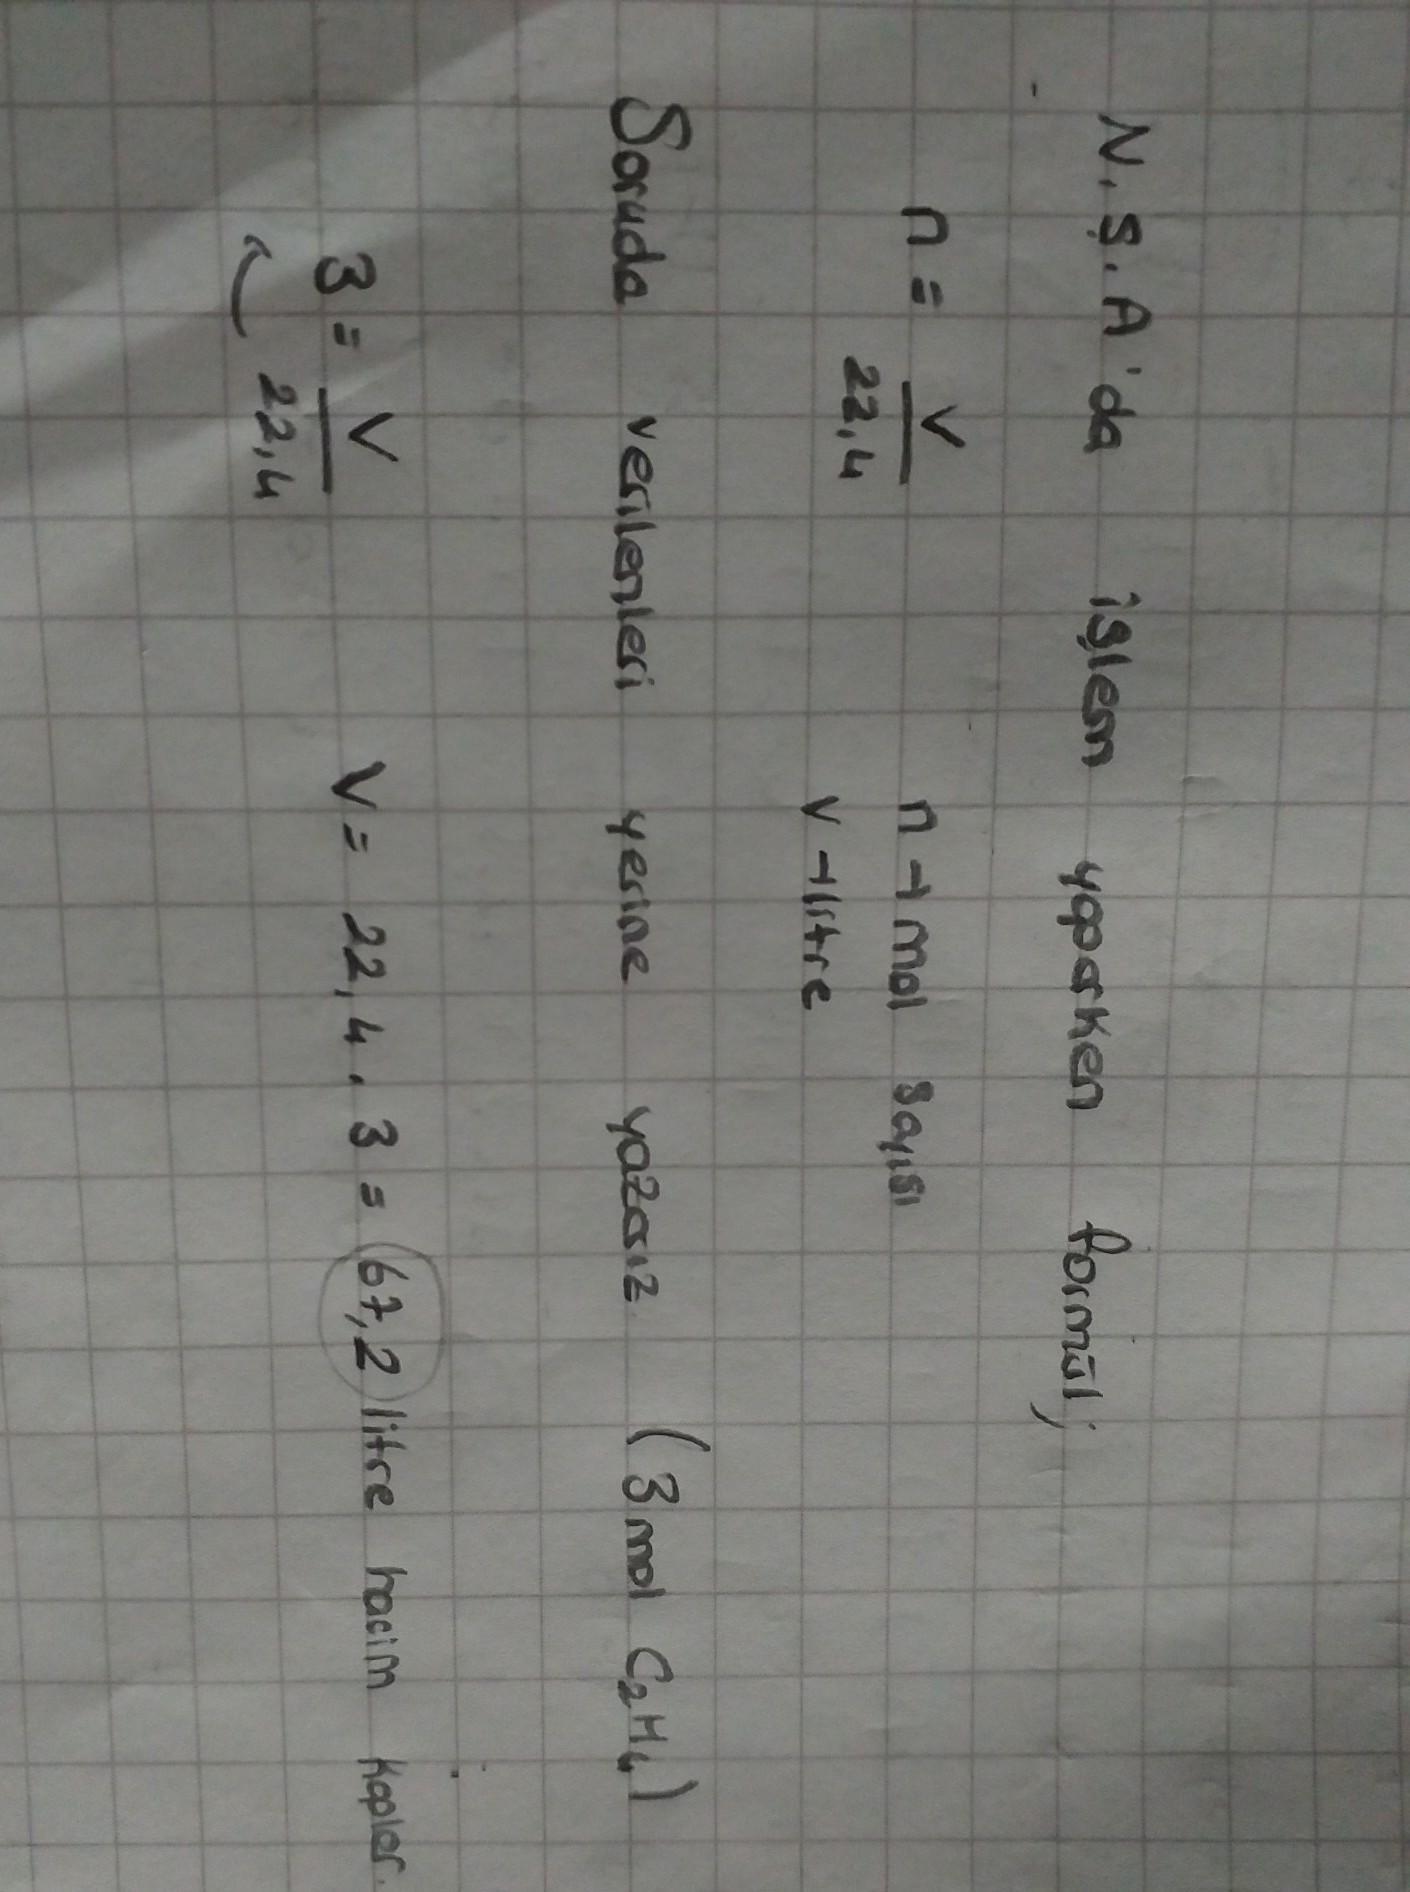 N.Ş.A'da işlem yaparken formül;
n = V / 22,4 n → mol sayısı
v → litre
Soruda verilenleri yerine yazarız (3 mol C₂H₄)
3 = V / 22,4 V = 22,4 . 3 = 67,2 litre hacim kaplar.